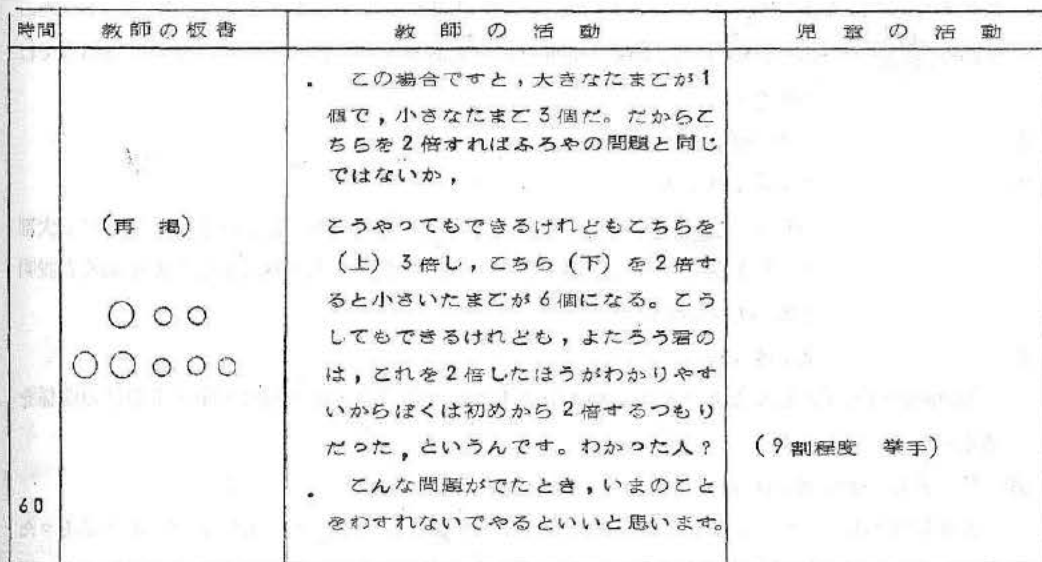 時間 教師の板書 教師の活動 児童の活動
・ この場合ですと，大きなたまごが1
個で，小さなたまご3個だ。だからこ
ちらを2倍すればふろやの問題と同じ
ではないか，
(再掲) こうやってもできるけれどもこちらを
(上) 3倍し，こちら (下) を2倍す
ると小さいたまごが6個になる。こう
してもできるけれども，よたろう君の
は，これを2倍したほうがわかりやす
いからぼくは初めから2倍するつもり
だった，というんです。わかった人？ (9割程度 挙手)
・ こんな問題がでたとき，いまのこと
60 をわすれないでやるといいと思います。